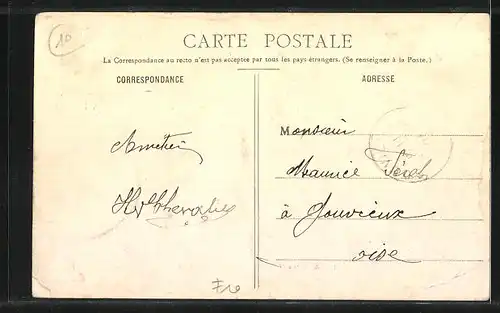 10
CARTE POSTALE
La Correspondance au recto n'est pas acceptée par tous les pays étrangers. (Se renseigner à la Poste.)
CORRESPONDANCE
ADRESSE
Monsieur
Maurice
à Gouvieux
oise